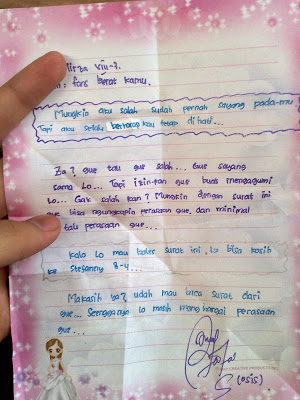 Mirza VIII-7.
: fans berat kamu.
Mungkin aku salah sudah pernah sayang pada-mu
Tapi aku selalu berharap kau tetap di hati...
Za? gue tau gue salah... Gue sayang
sama Lo... Tapi izin-kan gue buat mengagumi
Lo... Gak salah kan? Mungkin dengan surat ini
gue bisa ngungkapin perasaan gue, dan minimal
tau perasaan gue...
Kalo Lo mau bales surat ini, Lo bisa kasih
ke Stefanny 8-4...
Makasih ya? udah mau baca surat dari
gue... Seenggaknya Lo masih menghargai perasaan
gue...
(OSIS)